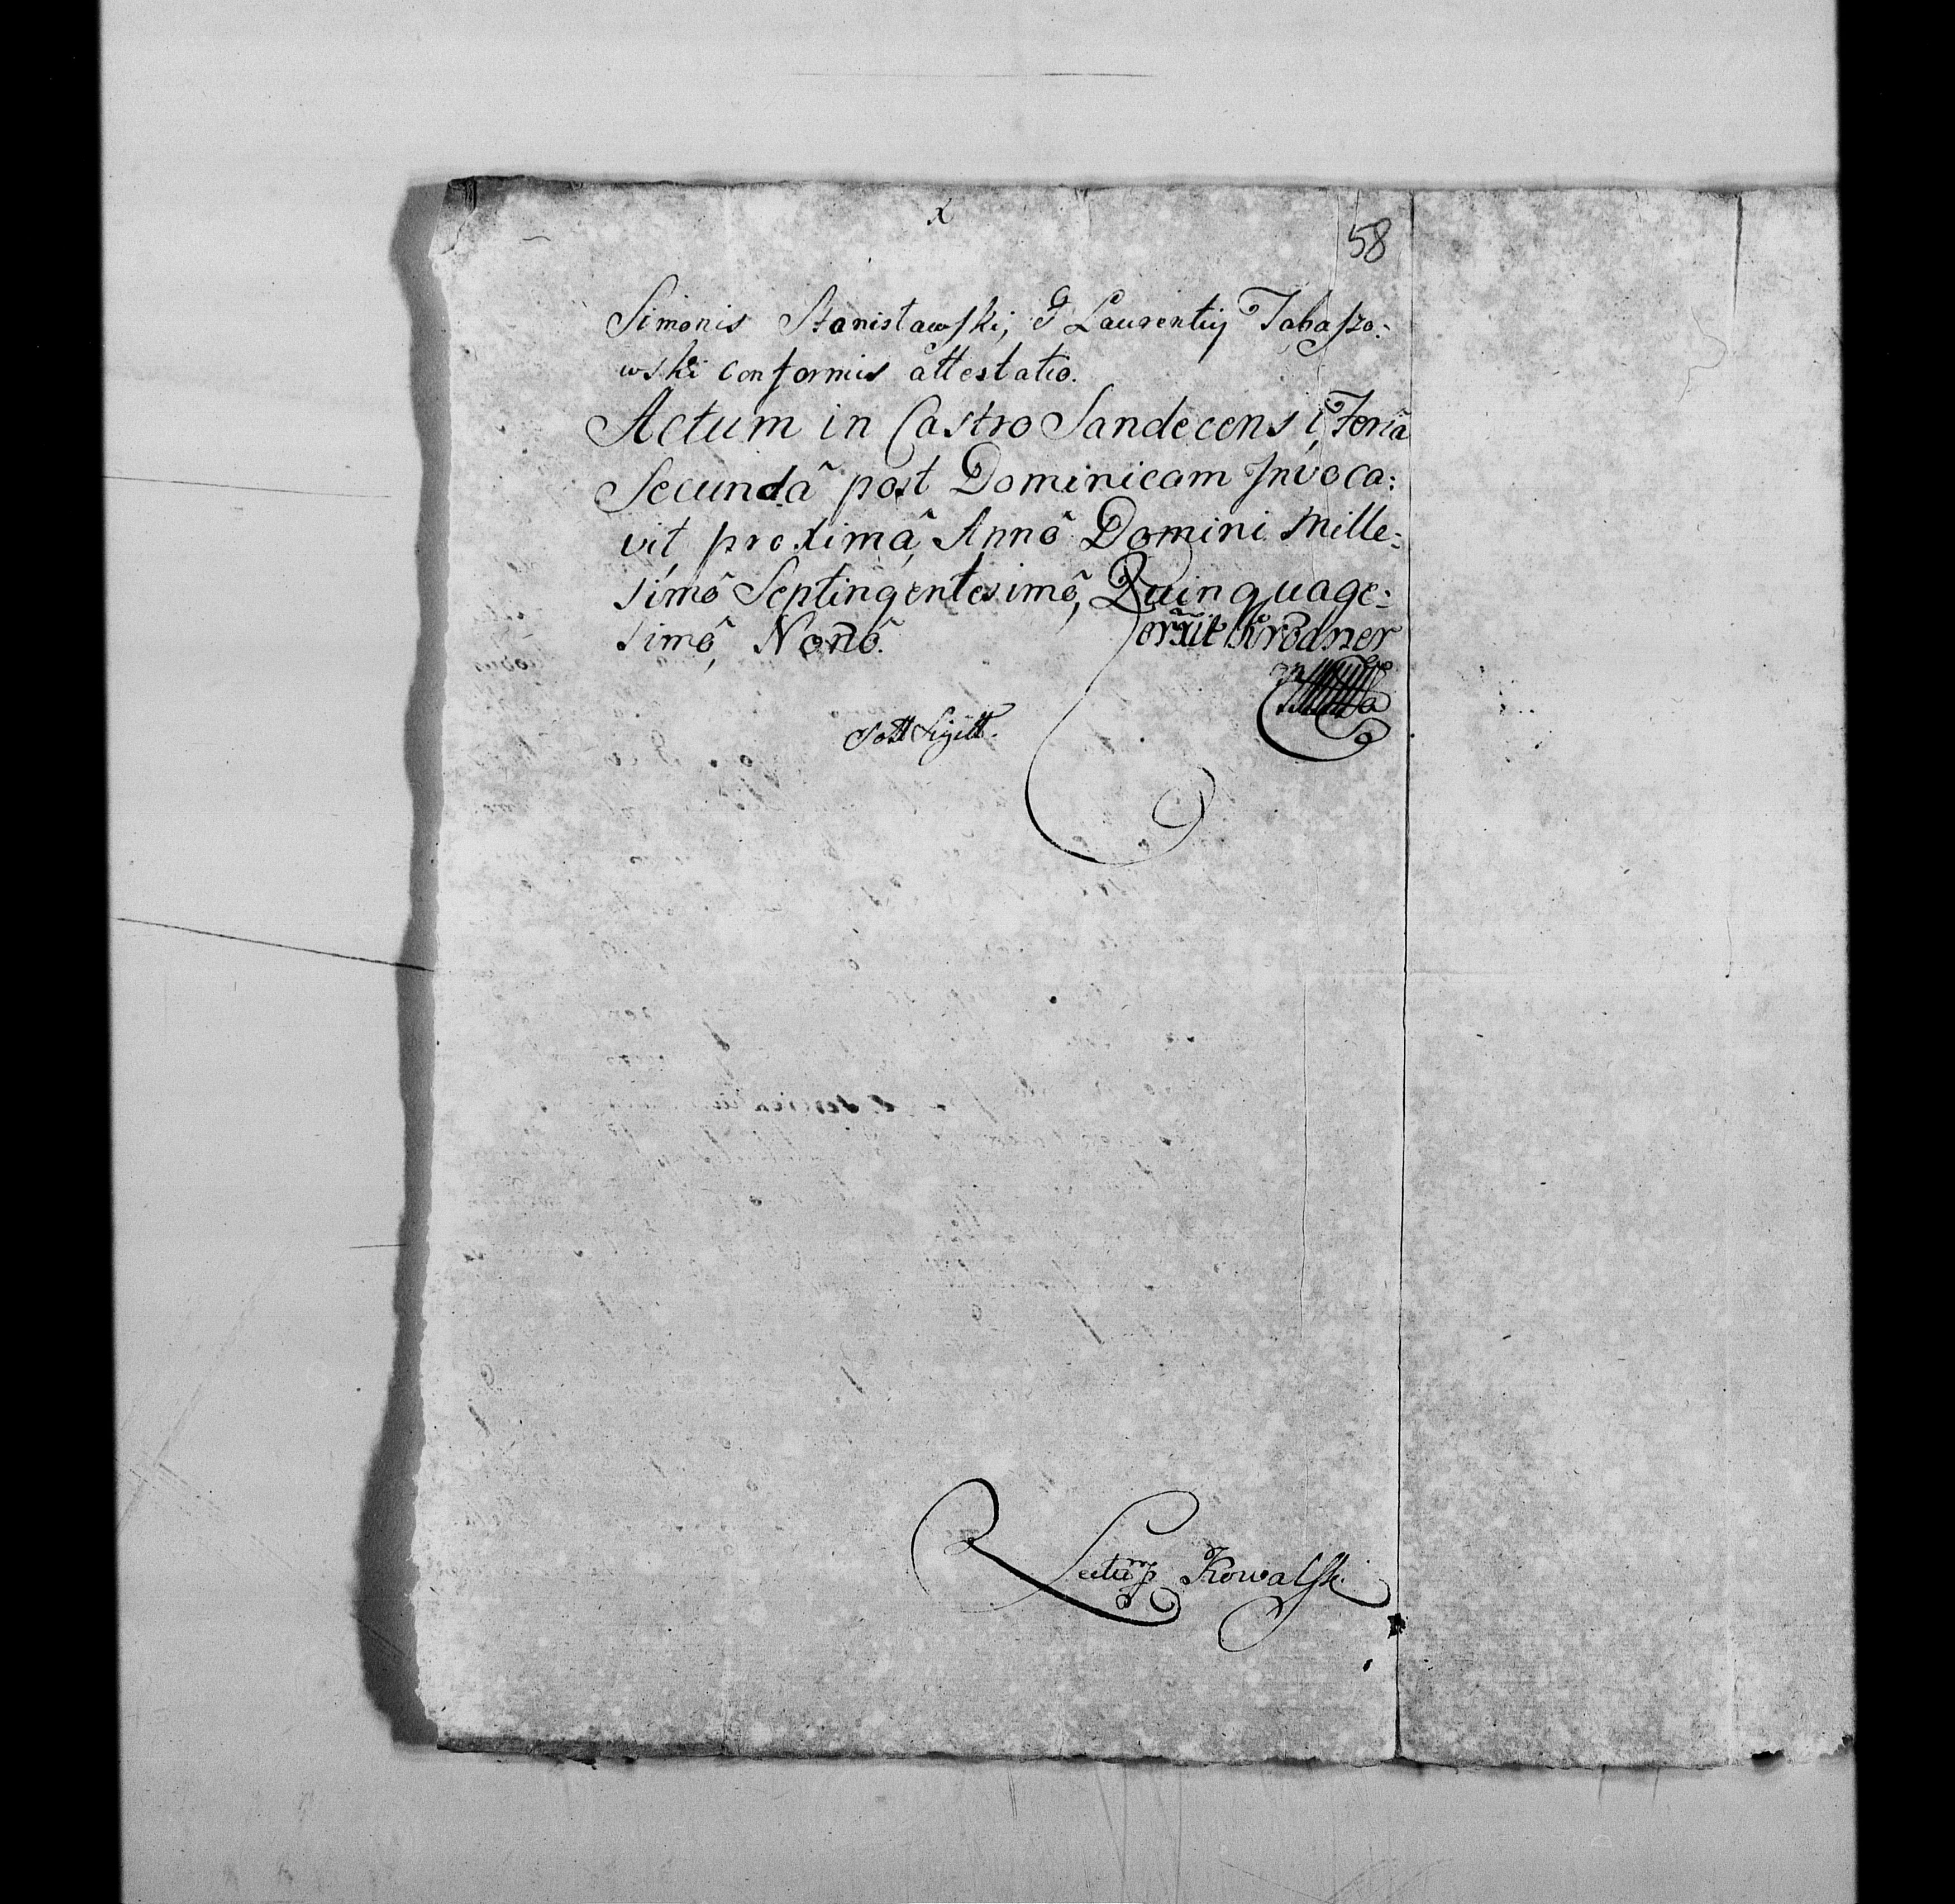 58
Simonis Stanisławski, & Laurentÿ Tabaszo:
wski conformis attestatio.
Actum in Castro Sandecensi, Feriâ
Secundâ post Dominicam Invoca:
vit, proximâ, Annô Domini Mille:
simô Septingentesimô, Quinquage:
simô, Nonô.
Lectũ p Kowalski